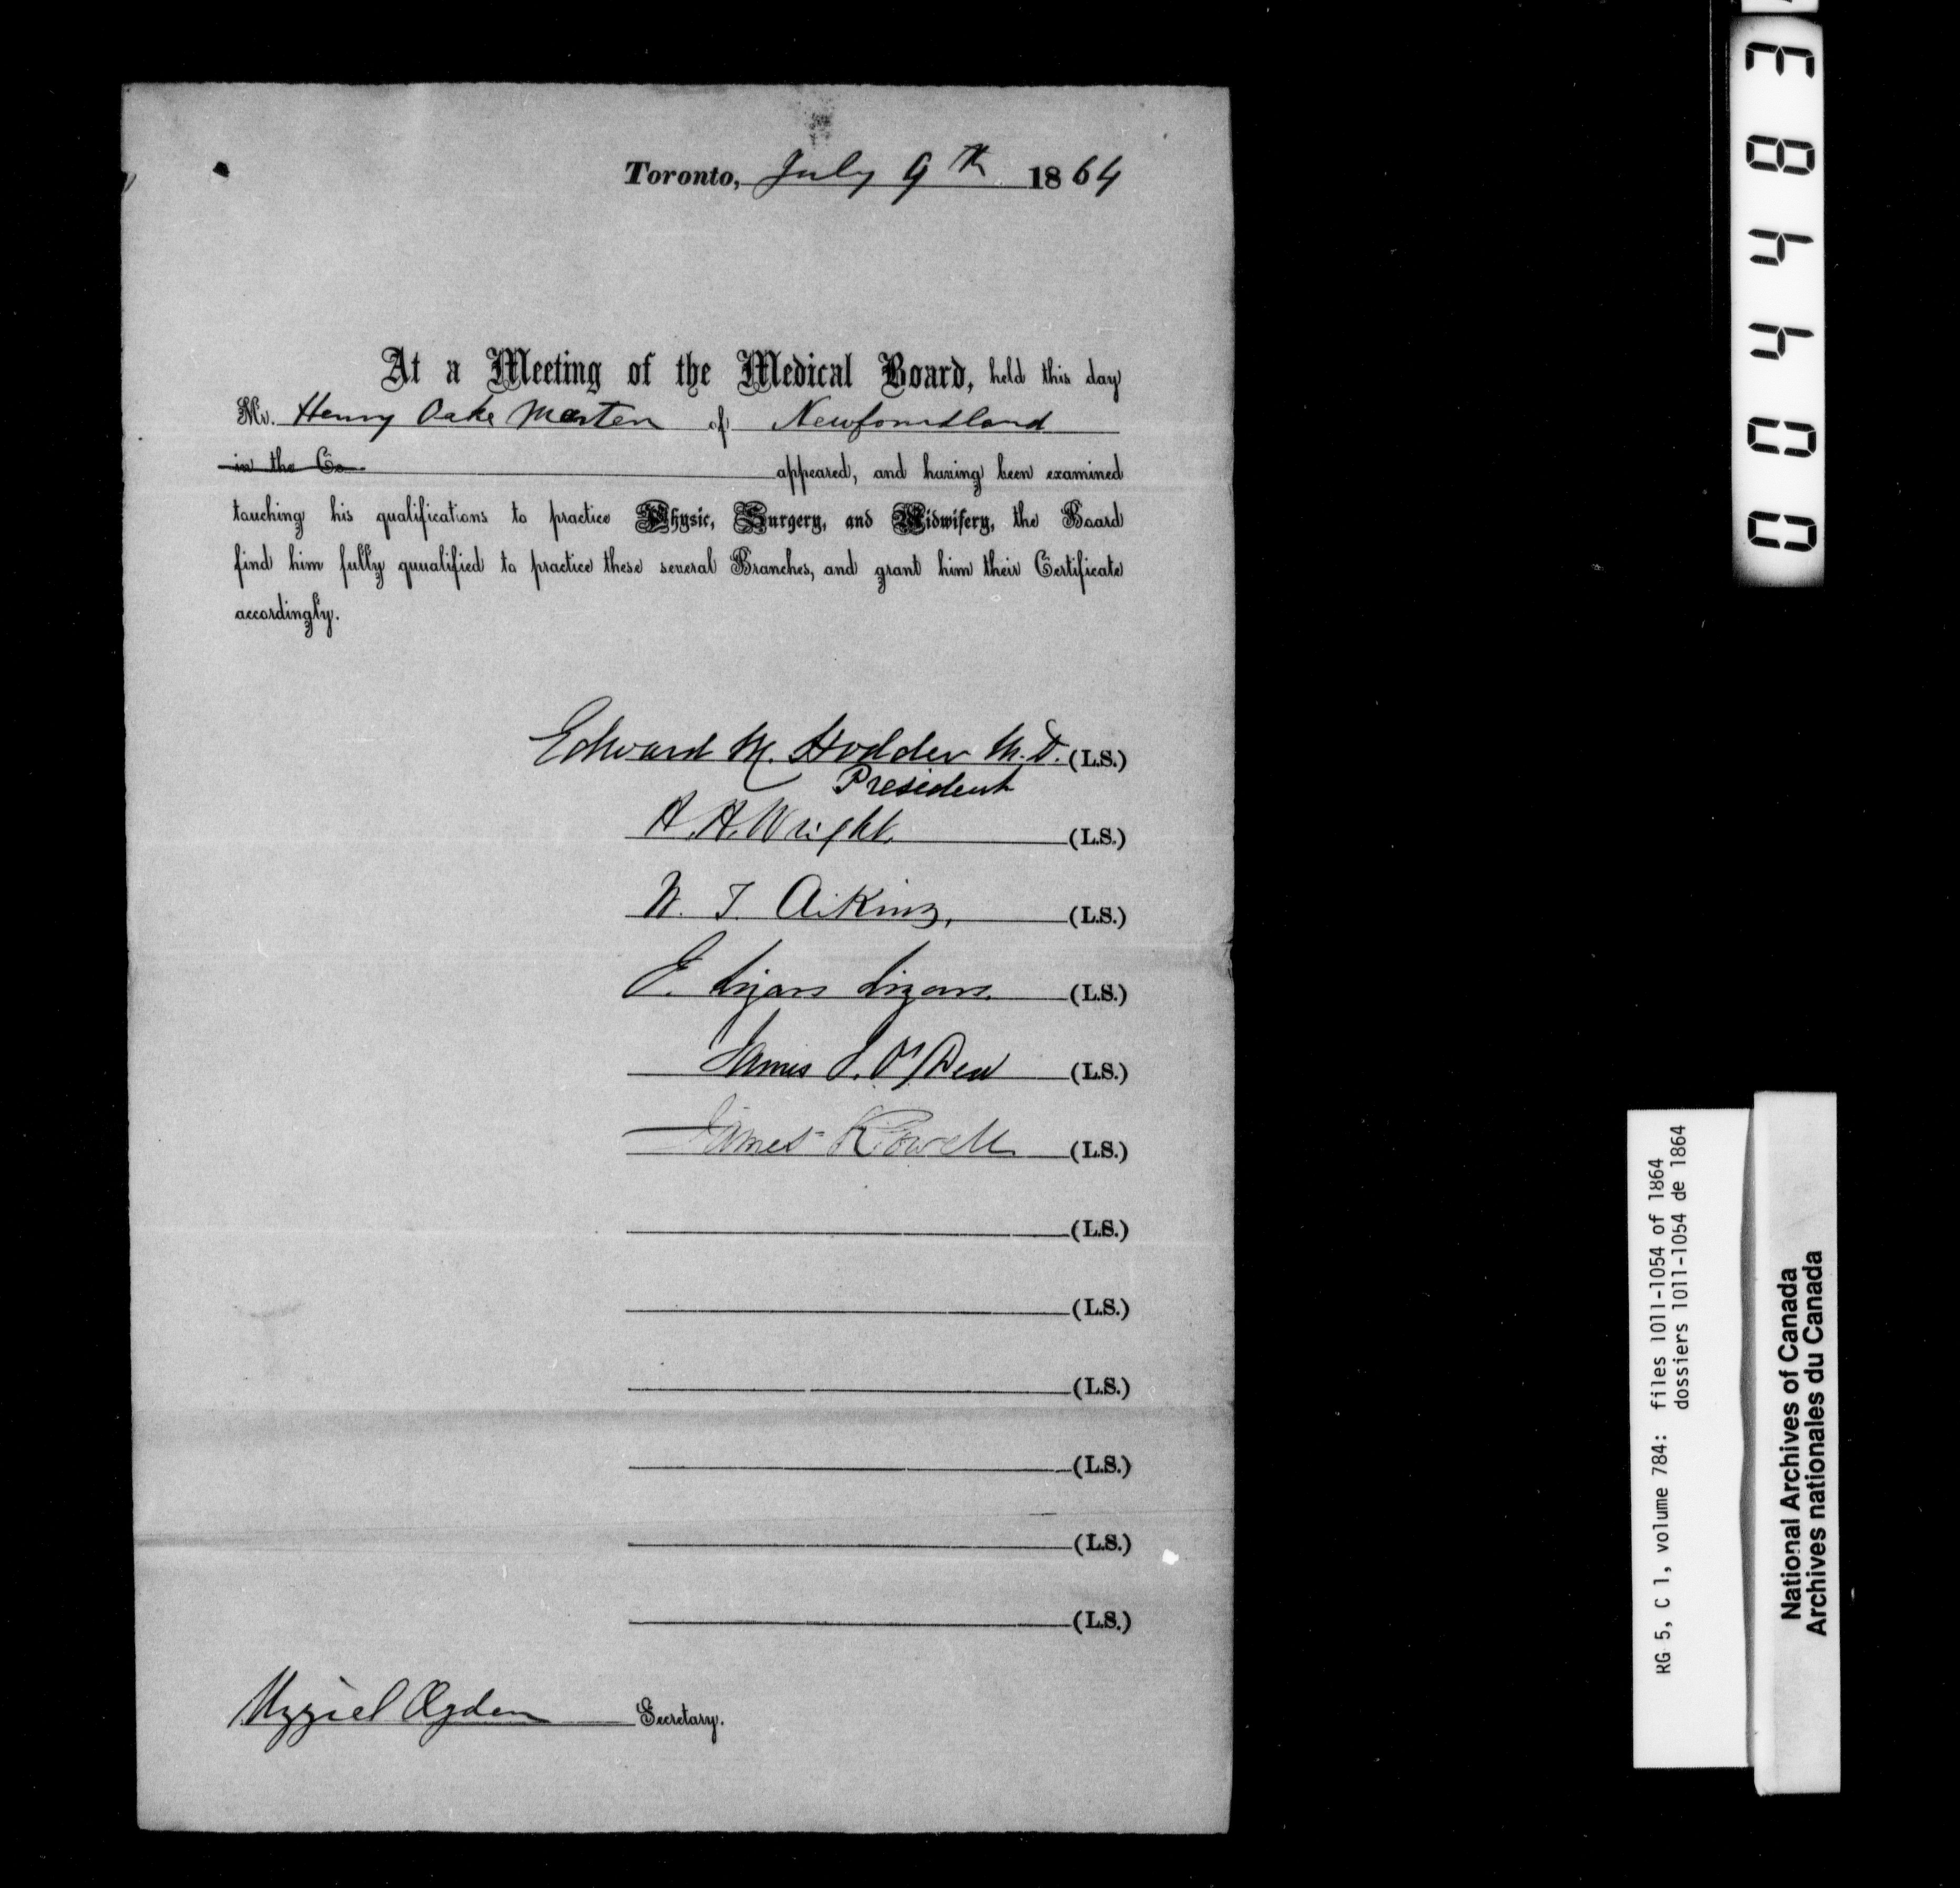 Toronto, July 9th 1864
At a Meeting of the Medical Board, held this day
Mr. Henry Oake Marten of Newfoundland
in the Co appeared, and having been examined
touching his qualifications to practice Physic, Surgery, and Midwifery, the Board
find him fully quualified to practice these several Branches, and grant him their Certificate
accordingly.
Edward M. Hodder M.D. (L.S.)
President
H. H. Wright. (L.S.)
W. T. Aikins, (L.S.)
E. Lizars Lizars. (L.S.)
James S. O'Dea (L.S.)
James Rowell (L.S.)
(L.S.)
(L.S.)
(L.S.)
(L.S.)
(L.S.)
(L.S.)
Uzziel Ogden Secretary.
004483
RG 5, C 1, volume 784: files 1011-1054 of 1864
dossiers 1011-1054 de 1864
National Archives of Canada
Archives nationales du Canada